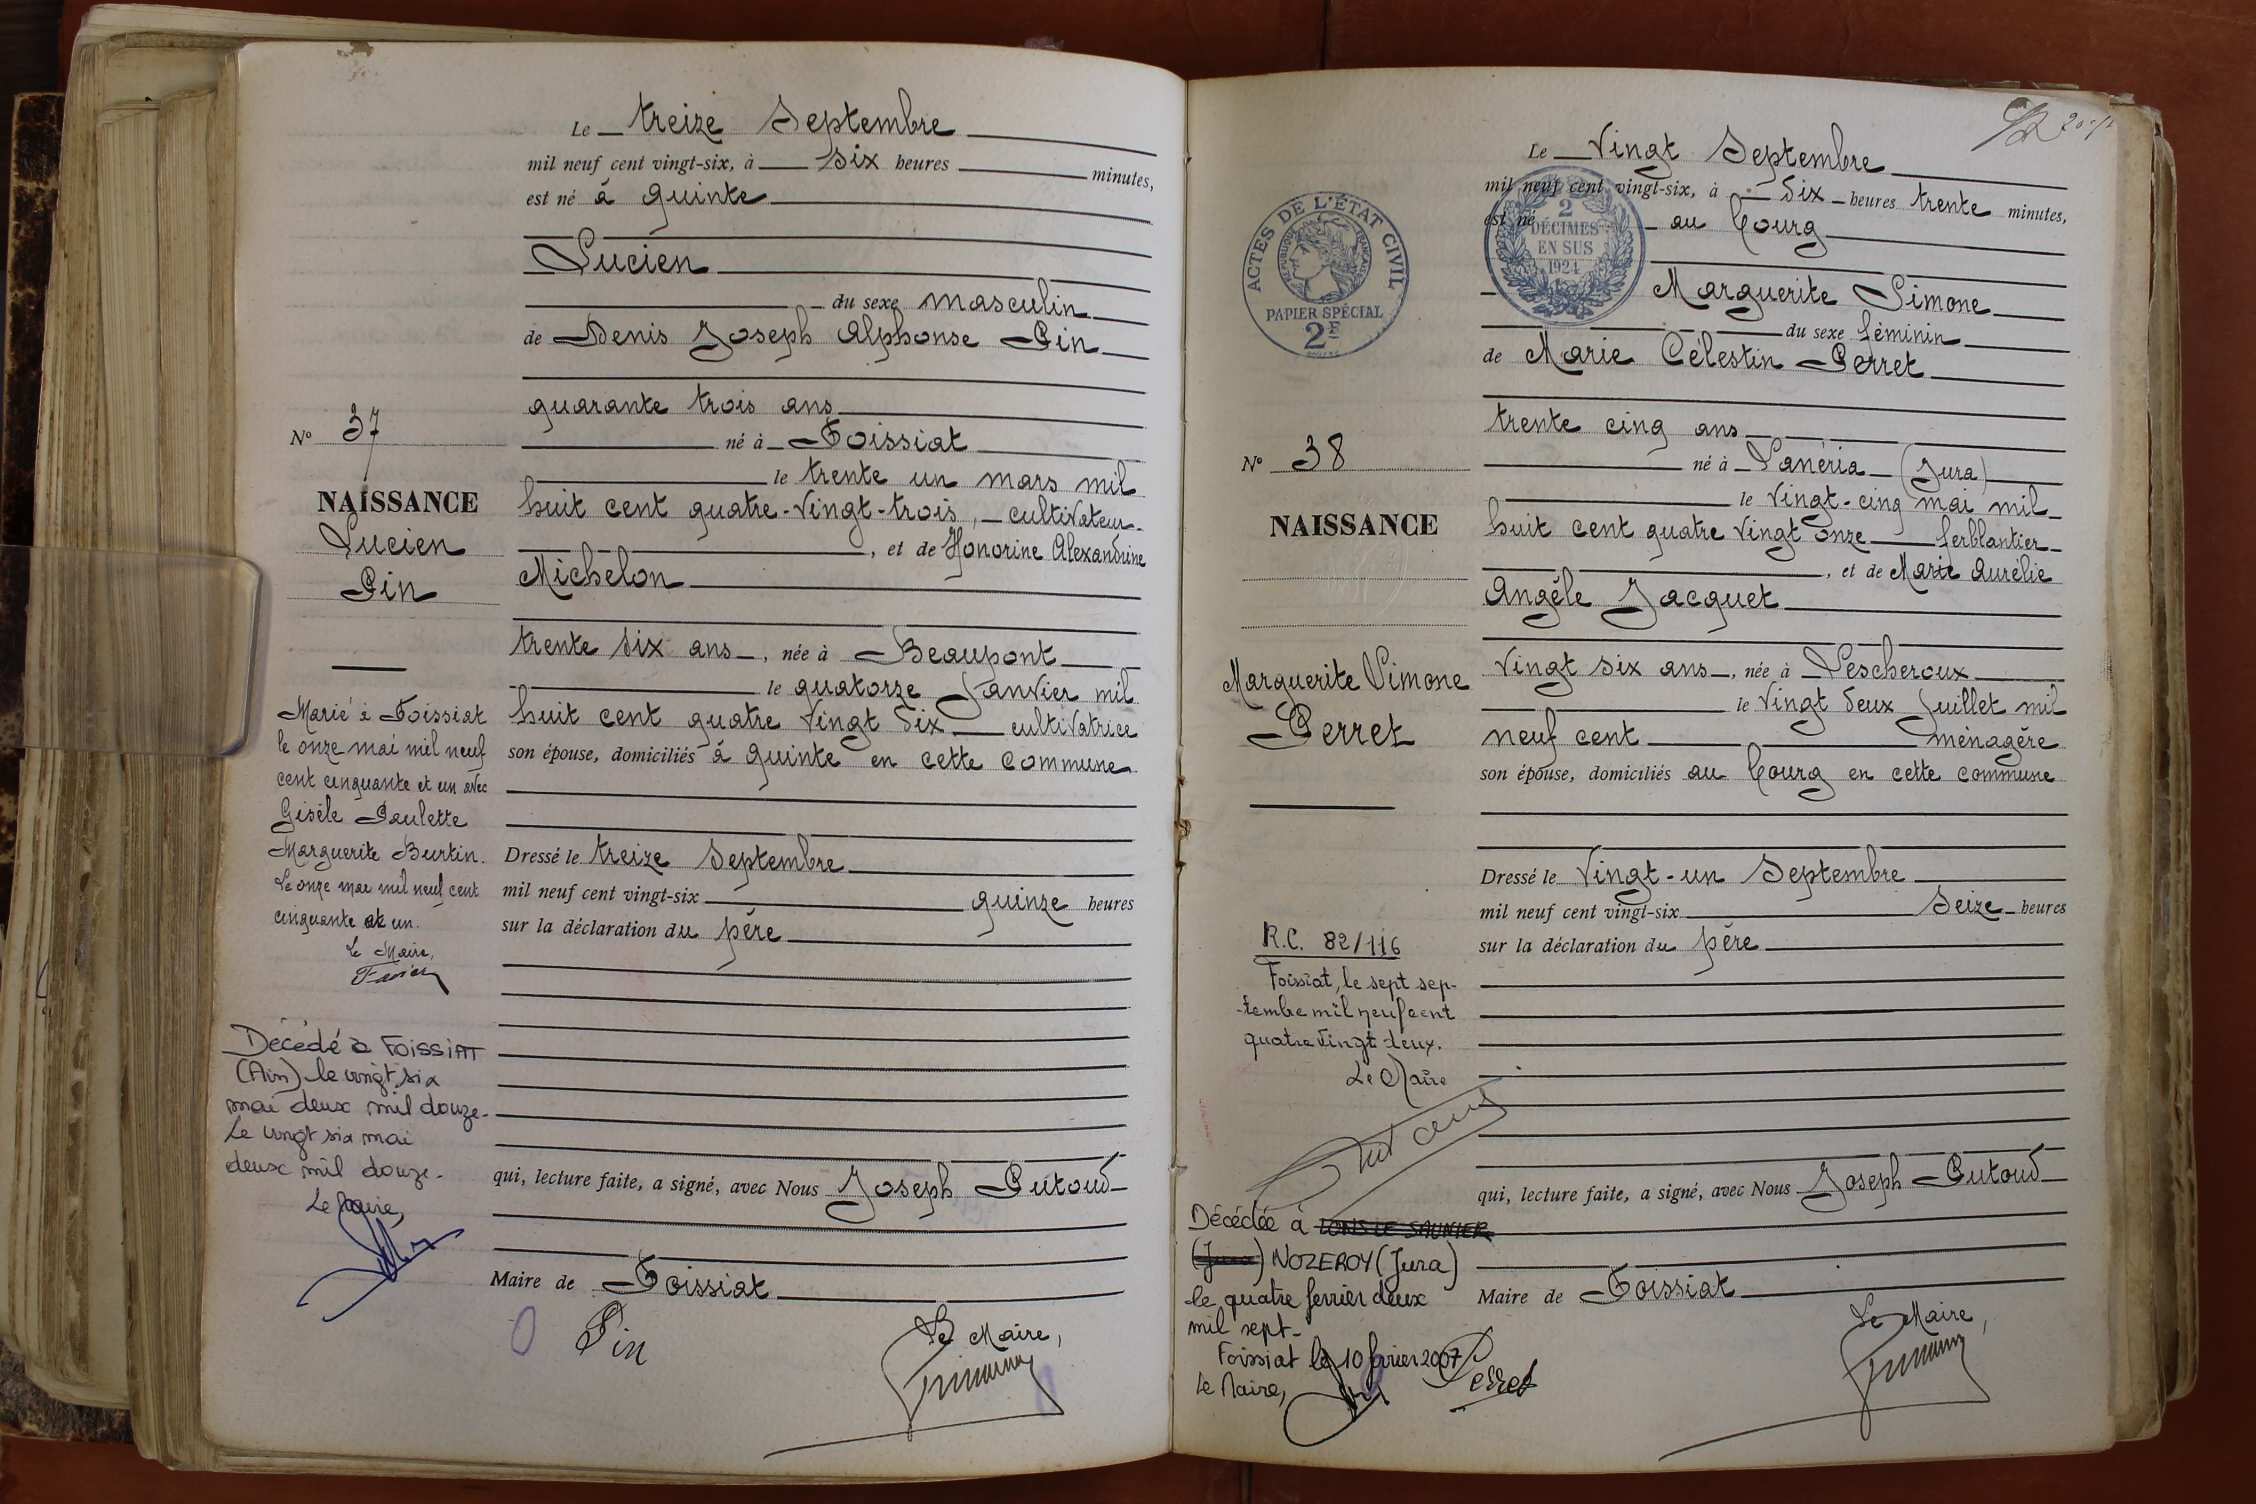 Le treize Septembre
mil neuf cent vingt-six, à six heures minutes,
est né à Quinte
Lucien
du sexe masculin
de Denis Joseph Alphonse Pin
quarante trois ans
né à Foissiat
le trente un mars mil
huit cent quatre-vingt-trois, cultivateur
, et de Honorine Alexandrine
Michelon
trente six ans, née à Beaupont
le quatorze Janvier mil
huit cent quatre vingt dix cultivatrice
son épouse, domiciliés à Quinte en cette commune
Dressé le treize Septembre
mil neuf cent vingt-six quinze heures
sur la déclaration du père
qui, lecture faite, a signé, avec Nous Joseph Putoud
Maire de Foissiat
Pin
Le Maire,
N° 37
NAISSANCE
Lucien
Pin
Marié à Foissiat
le onze mai mil neuf
cent cinquante et un avec
Gisèle Paulette
Marguerite Burtin.
Le onze mai mil neuf cent
cinquante et un.
Le Maire,
Décédé à FOISSIAT
(Ain) le vingt six
mai deux mil douze.
Le vingt six mai
deux mil douze.
Le Maire,
Le Vingt Septembre
mil neuf cent vingt-six, à dix heures trente minutes,
est né au bourg
Marguerite Simone
du sexe féminin
de Marie Célestin Perret
trente cinq ans
né à Lanéria (Jura)
le vingt-cinq mai mil
huit cent quatre vingt onze ferblantier
, et de Marie Aurélie
Angèle Jacquet
vingt six ans, née à Lescheroux
le vingt deux Juillet mil
neuf cent ménagère
son épouse, domiciliés au bourg en cette commune
Dressé le vingt-un Septembre
mil neuf cent vingt-six Seize heures
sur la déclaration du père
qui, lecture faite, a signé, avec Nous Joseph Putoud
Maire de Foissiat
Le Maire,
Perret
ACTES DE L'ÉTAT CIVIL
RÉPUBLIQUE FRANÇAISE
PAPIER SPÉCIAL
2F
2
DÉCIMES
EN SUS
1924
N° 38
NAISSANCE
Marguerite Simone
Perret
R.C. 82/116
Foissiat, le sept sep-
-tembre mil neuf cent
quatre vingt deux.
Le Maire
Décédée à LONS LE SAUNIER
(Jura) NOZEROY (Jura)
le quatre février deux
mil sept.
Foissiat le 10 février 2007
Le Maire,